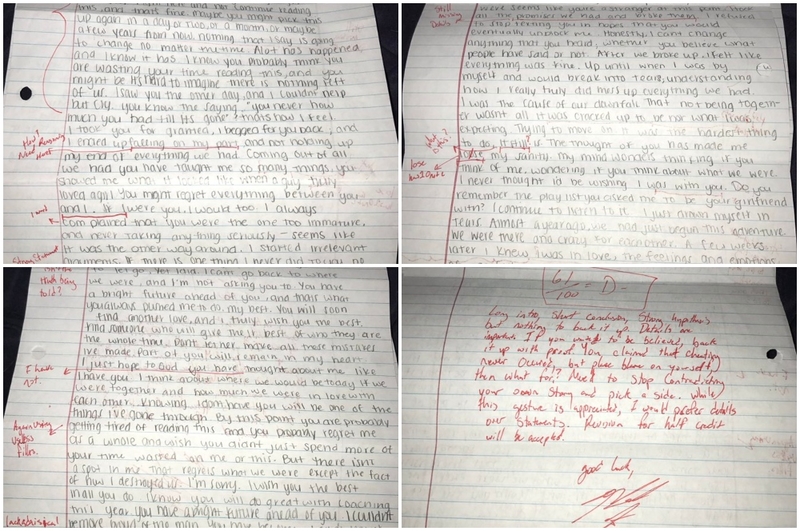 reading
this, and that's fine. maybe you might pick this
up again in a day or two, or a month, or maybe
a few years from now, nothing that I say is going
to change no matter the time. Alot has happened
and I know it has. I know you probably think you
are wasting your time reading this, and you
might be
of us. I saw you the other day, and I couldn't help
but cry. you know the saying, "you never how
much you had till its gone" thats how I feel
I took you for granted, I begged for you back, and
I ended up falling on my end, and not holding up
my end of everything we had. Coming out of all
we had you have taught me so many things. you
showed me what it looked like when a guy truly
loved a girl. You might regret everything between you
and I. If I were you, I would too. I always
complained that you were the one too immature,
and never taking anything seriously - seems like
it was the other way around. I started irrelevant
arguments. If there is one thing I never did to you
Still
missing
Details
were seems like you're a stranger at this point.
all the promises we had and broke them. I refused
to stop texting you in hopes that you would
eventually unblock me. Honestly, I cant change
anything that you heard, whether you believe what
people have said or not. After we broke up. I felt like
everything was fine. Up until when I was by
myself and would break into tears, understanding
how I really truly did mess up everything we had.
I was the cause of our downfall. That not being togeth-
er wasnt all it was cracked up to be nor what I was
expecting. Trying to move on it was the harder thing
to do, If the thought of you has made me
my sanity. my mind wonders thinking if you
think of me. wondering if you think about what we were
I never thought id be wishing I was with you. Do you
remember the playlist you asked me to be your girlfriend
with? I continue to listen to it. I just drown myself in
tears. Almost a year ago, we had just begun this adventure
we were there and crazy for eachother. A few weeks
later I knew I was in love the feelings and emotions
lose
truth being
told?
to let go. Yet laid. I cant go back to where
we were, and I'm not asking you to. You have
a bright future ahead of you, and thats what
you always pushed me to do, my best. You will soon
find another love, and I truly wish you the best.
Find someone who will give the best of who they are
the whole time. Dont let her make all those mistakes
ive made. Part of you will remain in my heart.
I just hope to God you have thought about me like
I have you. I think about where we would be today if we
were together and how much we were in love with
each other. Knowing I dont have you will be one of the
things I've gone through. By this point you are probably
getting tired of reading this and you probably regret me
as a whole and wish you didnt just spend more of
your time wasted on me or this. But there isnt
a spot in me that regrets what we were except the fact
of how I destroyed us. I'm sorry. I wish you the best
in all you do. I know you will do great with coaching
this year. You have a bright future ahead of you. I couldn't
be more proud of the man you have
I have
not.
Again using
useless
filler.
61/100 = D-
Long intro, Short conclusion, Strong hypothesis
but nothing to back it up. Details are
important. If you want to be believed, back
it up with proof. You claimed that cheating
never occurred, but place blame on yourself,
then what for? Need to stop contradicting
your own story and pick a side. While
this gesture is appreciated, I would prefer details
over statements. Revision for half credit
will be accepted.
good luck,